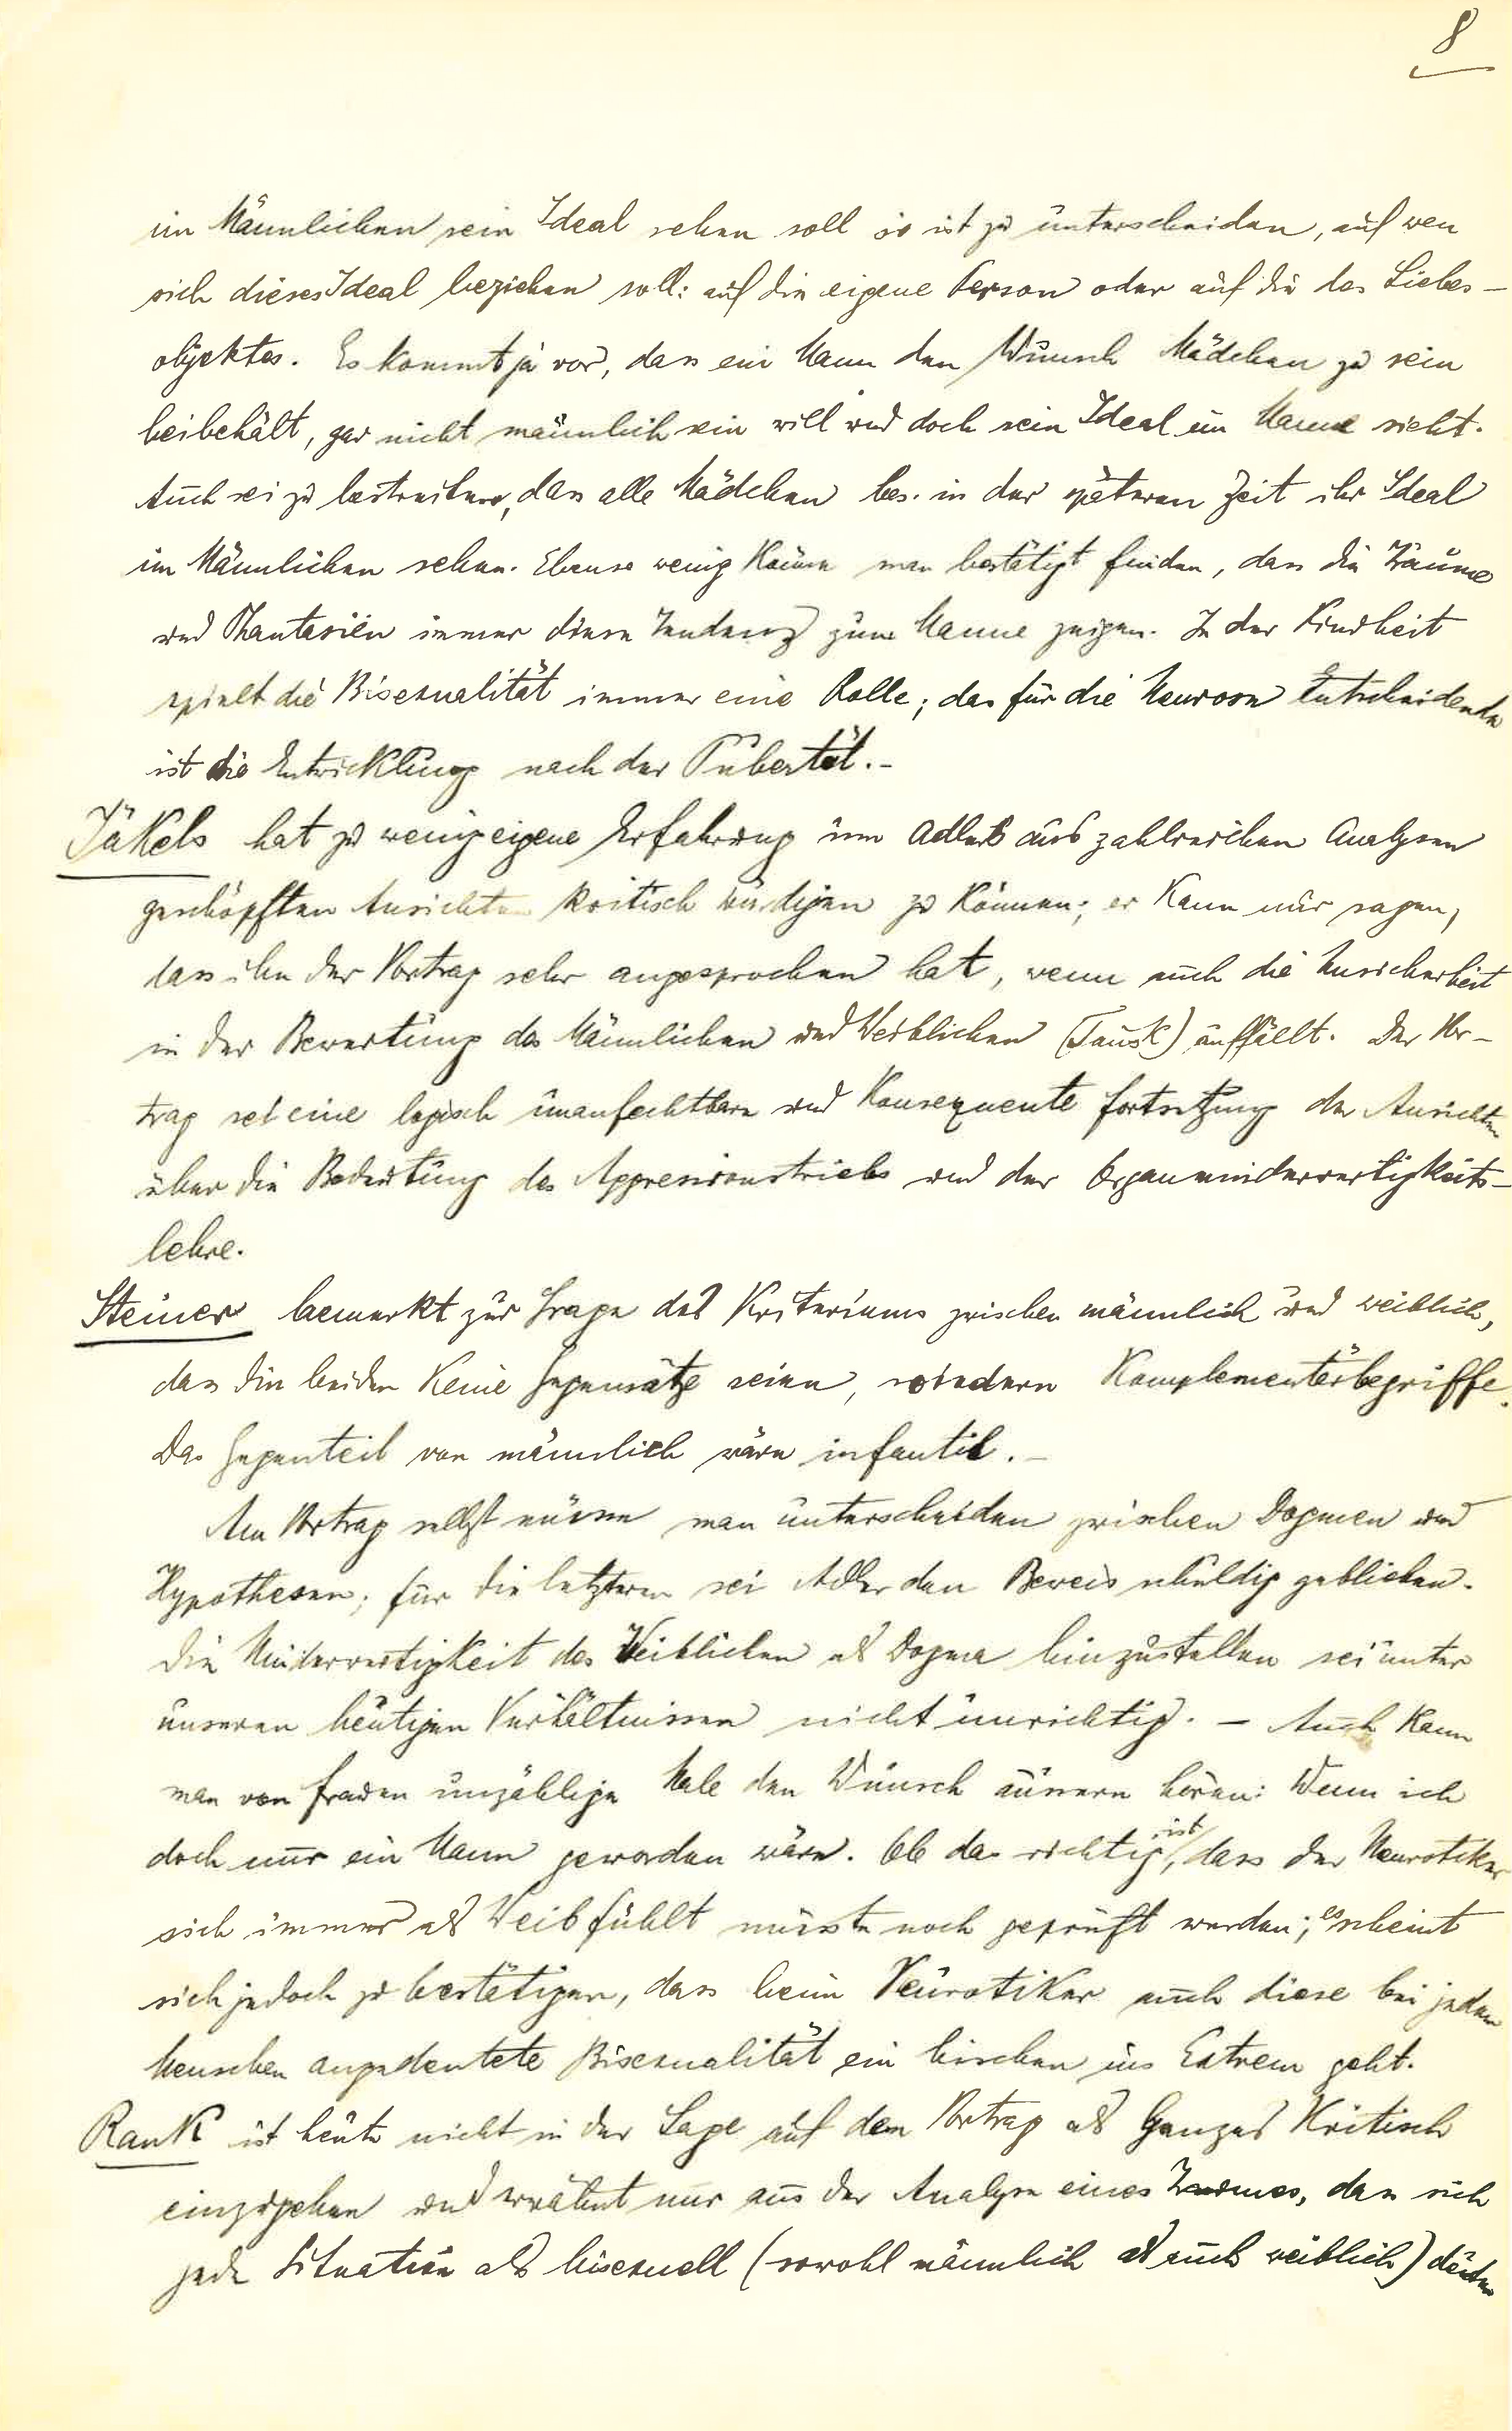 8
im Männlichen sein Ideal sehen soll so ist zu unterscheiden, auf wen
sich dieses Ideal beziehen soll: auf die eigene Person oder auf die des Liebes-
objektes. Es kommt ja vor, dass ein Mann den Wunsch Mädchen zu sein
beibehält, gar nicht männlich sein will und doch sein Ideal im Manne sieht.
Auch sei zu bestreiten, dass alle Mädchen bes. in der späteren Zeit ihr Ideal
im Männlichen sehen. Ebenso wenig könne man bestätigt finden, dass die Träume
und Phantasien immer diese Tendenz zum Manne zeigen. In der Kindheit
spielt die Bisexualität immer eine Rolle; das für die Neurose Entscheidende
ist die Entwicklung nach der Pubertät.-
Jäkels hat zu wenig eigene Erfahrung um Adlers aus zahlreichen Analysen
geschöpften Ansichten kritisch würdigen zu können; er kann nur sagen,
dass ihn der Vortrag sehr angesprochen hat, wenn auch die Unsicherheit
in der Bewertung des Männlichen und Weiblichen (Tausk) auffällt. Der Vor-
trag sei eine logisch unanfechtbare und konsequente Fortsetzung der Ansichten
über die Bedeutung des Aggressionstriebs und der Organminderwertigkeits-
lehre.
Steiner bemerkt zur Frage des Kriteriums zwischen männlich und weiblich,
dass die beiden keine Gegensätze seien, sondern Komplementärbegriffe.
Das Gegenteil von männlich wäre infantil.-
Am Vortrag selbst müsse man unterscheiden zwischen Dogmen und
Hypothesen; für die letzteren sei Adler den Beweis schuldig geblieben.
Die Minderwertigkeit des Weiblichen als Dogma hinzustellen sei unter
unseren heutigen Verhältnissen nicht unrichtig. - Auch kann
man von Frauen unzählige Male den Wunsch äussern hören: Wenn ich
doch nur ein Mann geworden wäre. Ob das richtig ist, dass der Neurotiker
sich immer als Weib fühlt müsste noch geprüft werden; es scheint
sich jedoch zu bestätigen, dass beim Neurotiker auch diese bei jedem
Menschen angedeutete Bisexualität ein bischen ins Extrem geht.
Rank ist heute nicht in der Lage auf den Vortrag als Ganzes kritisch
einzugehen und erwähnt nur aus der Analyse eines Traumes, dass sich
jede Situation als bisexuell (sowohl männlich als auch weiblich) deuten